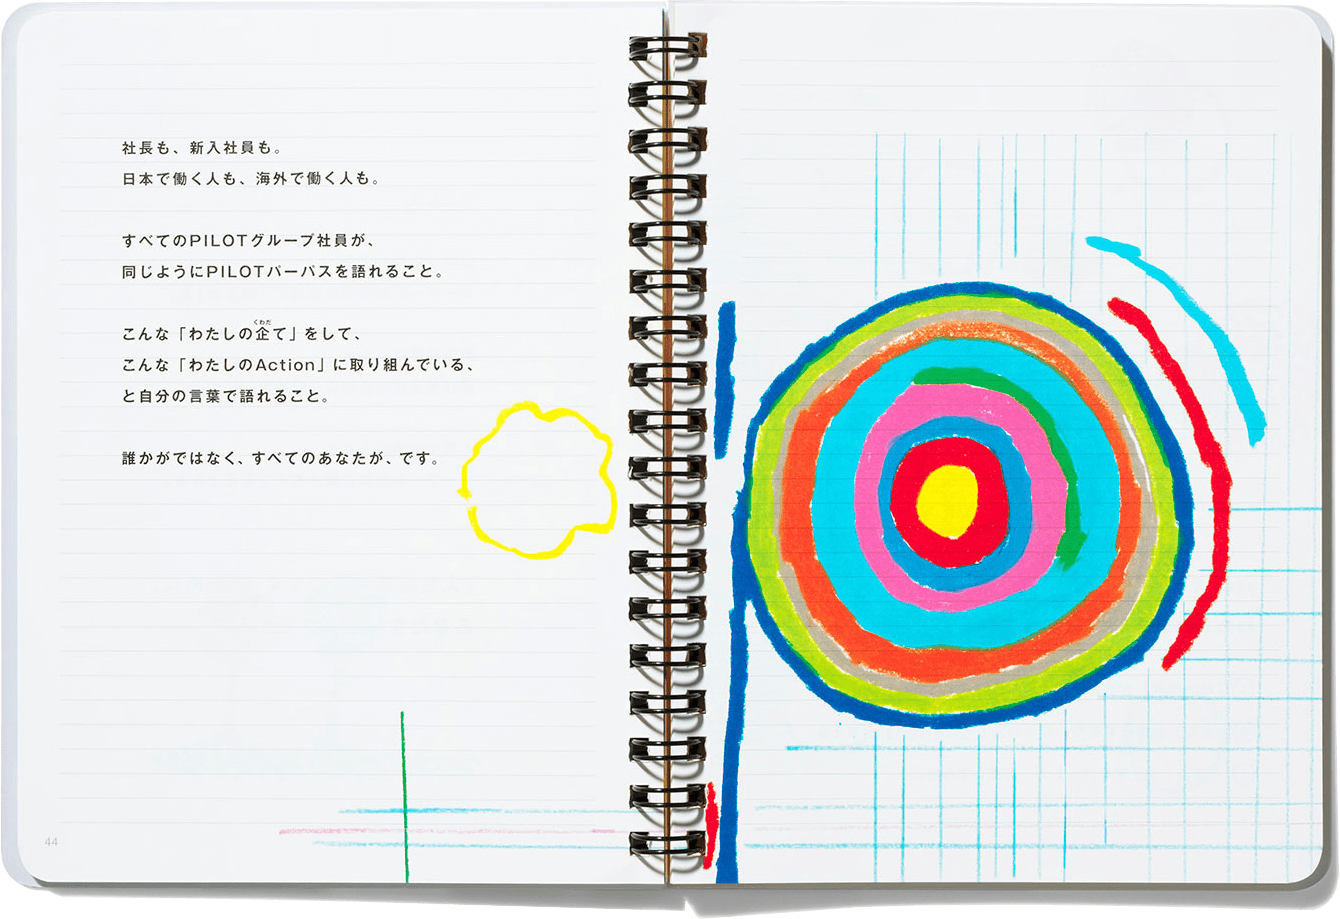 社長も、新入社員も。
日本で働く人も、海外で働く人も。
すべてのPILOTグループ社員が、
同じようにPILOTパーパスを語れること。
くわだ
こんな「わたしの企て」をして、
こんな「わたしのAction」に取り組んでいる、
と自分の言葉で語れること。
誰かがではなく、すべてのあなたが、です。
44